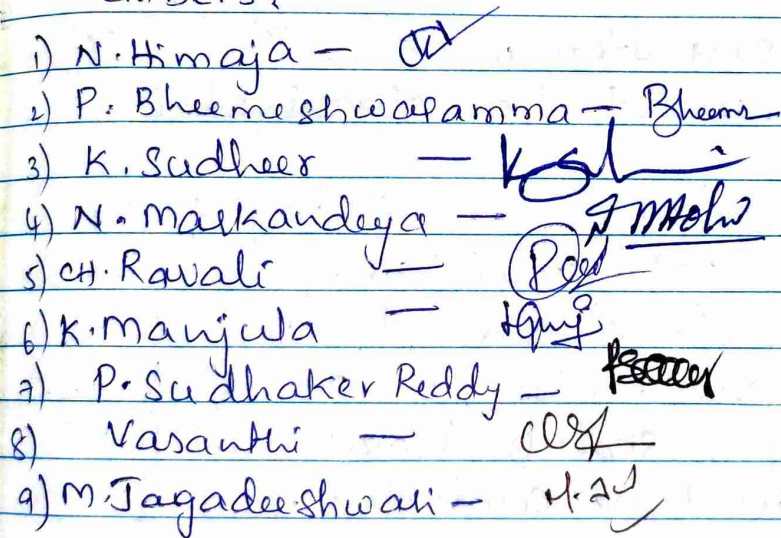 1) N. Himaja -
2) P. Bheemeshwaramma - Bheem
3) K. Sudheer -
4) N. Markandeya -
5) CH. Ravali -
6) K. Manjula -
7) P. Sudhaker Reddy -
8) Vasanthi -
9) M. Jagadeeshwari -